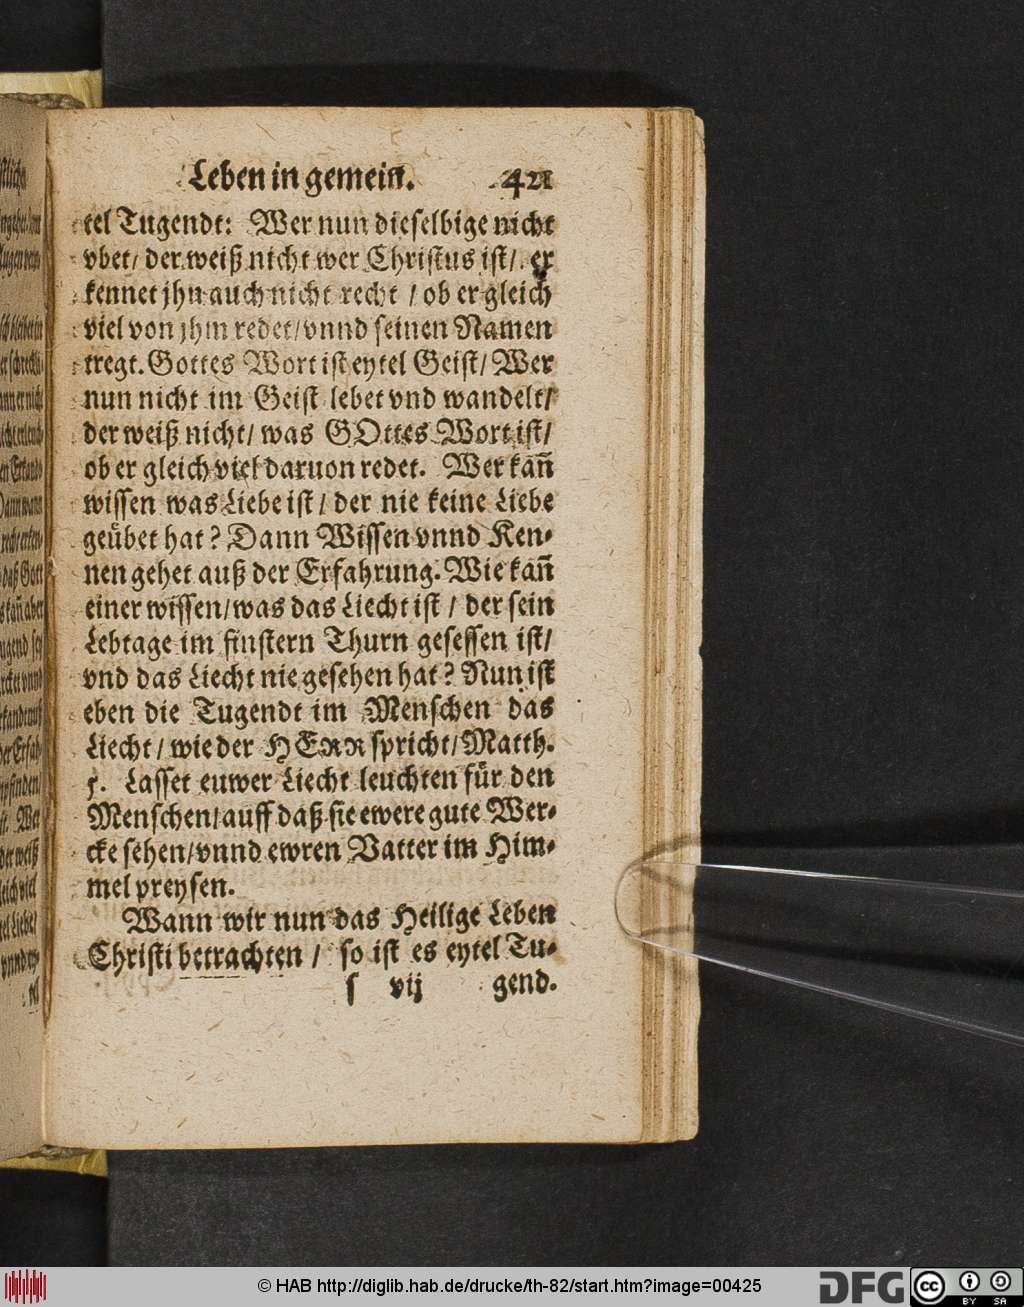 Leben in gemein. 421
tel Tugendt: Wer nun dieselbige nicht
vbet/ der weiß nicht wer Christus ist/ er
kennet jhn auch nicht recht / ob er gleich
viel von jhm redet/ vnnd seinen Namen
tregt. Gottes Wort ist eytel Geist/ Wer
nun nicht im Geist lebet vnd wandelt/
der weiß nicht/ was GOttes Wort ist/
ob er gleich viel daruon redet. Wer kañ
wissen was Liebe ist / der nie keine Liebe
geübet hat? Dann Wissen vnnd Ken-
nen gehet auß der Erfahrung. Wie kañ
einer wissen/ was das Liecht ist / der sein
Lebtage im finstern Thurn gesessen ist/
vnd das Liecht nie gesehen hat? Nun ist
eben die Tugendt im Menschen das
Liecht / wie der HERR spricht/ Matth.
5. Lasset euwer Liecht leuchten für den
Menschen/ auff daß sie ewere gute Wer-
cke sehen/ vnnd ewren Vatter im Him-
mel preysen.
Wann wir nun das Heilige Leben
Christi betrachten / so ist es eytel Tu-
s vij gend.
© HAB http://diglib.hab.de/drucke/th-82/start.htm?image=00425
DFG
cc BY SA